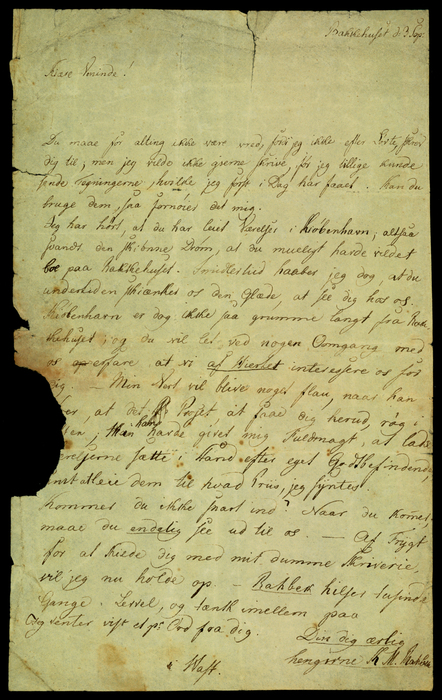 Bakkehuset d. 3 Sep.
Kiære Veninde!
Du maae for alting ikke være vred, fordi jeg ikke efter Løvte, skrev
dig til; men jeg vilde ikke gierne skrive, før jeg tillige kunde
sende Tegningerne, hvilke jeg først i Dag har faaet. Kan du
bruge dem, saa fornøier det mig.
Jeg har hørt, at du har leiet Værelser i Kiøbenhavn; altsaa
svandt den skiønne Drøm, at du mueligt havde vildet
boe paa Bakkehuset. Imidlertid haaber jeg dog, at du
undertiden skiænker os den Glæde, at see dig hos os.
Kiøbenhavn er dog ikke saa grumme langt fra Bak-
kehuset; og du vil let ved nogen Omgang med
os erfare at vi af Hiertet interessere os for
dig. — Min Vert vil blive noget flau, naar han
at det Project at faae dig herud, røg i
Han havde givet mig Fuldmagt, at lade
sætte i Stand efter eget Godtbefindende,
leie dem til hvad Priis, jeg syntes.
Kommer du ikke snart ind? Naar du kommer,
maae du endelig see ud til os. — Af Frygt
for at kiede dig med mit dumme Skriverie,
vil jeg nu holde op. — Rahbek hilser tusinde
Gange. Levvel, og tænk imellem paa
Jeg venter vist et par Ord fra dig.
Din dig ærlig
hengivne K. M. Rahbek
i Hast.